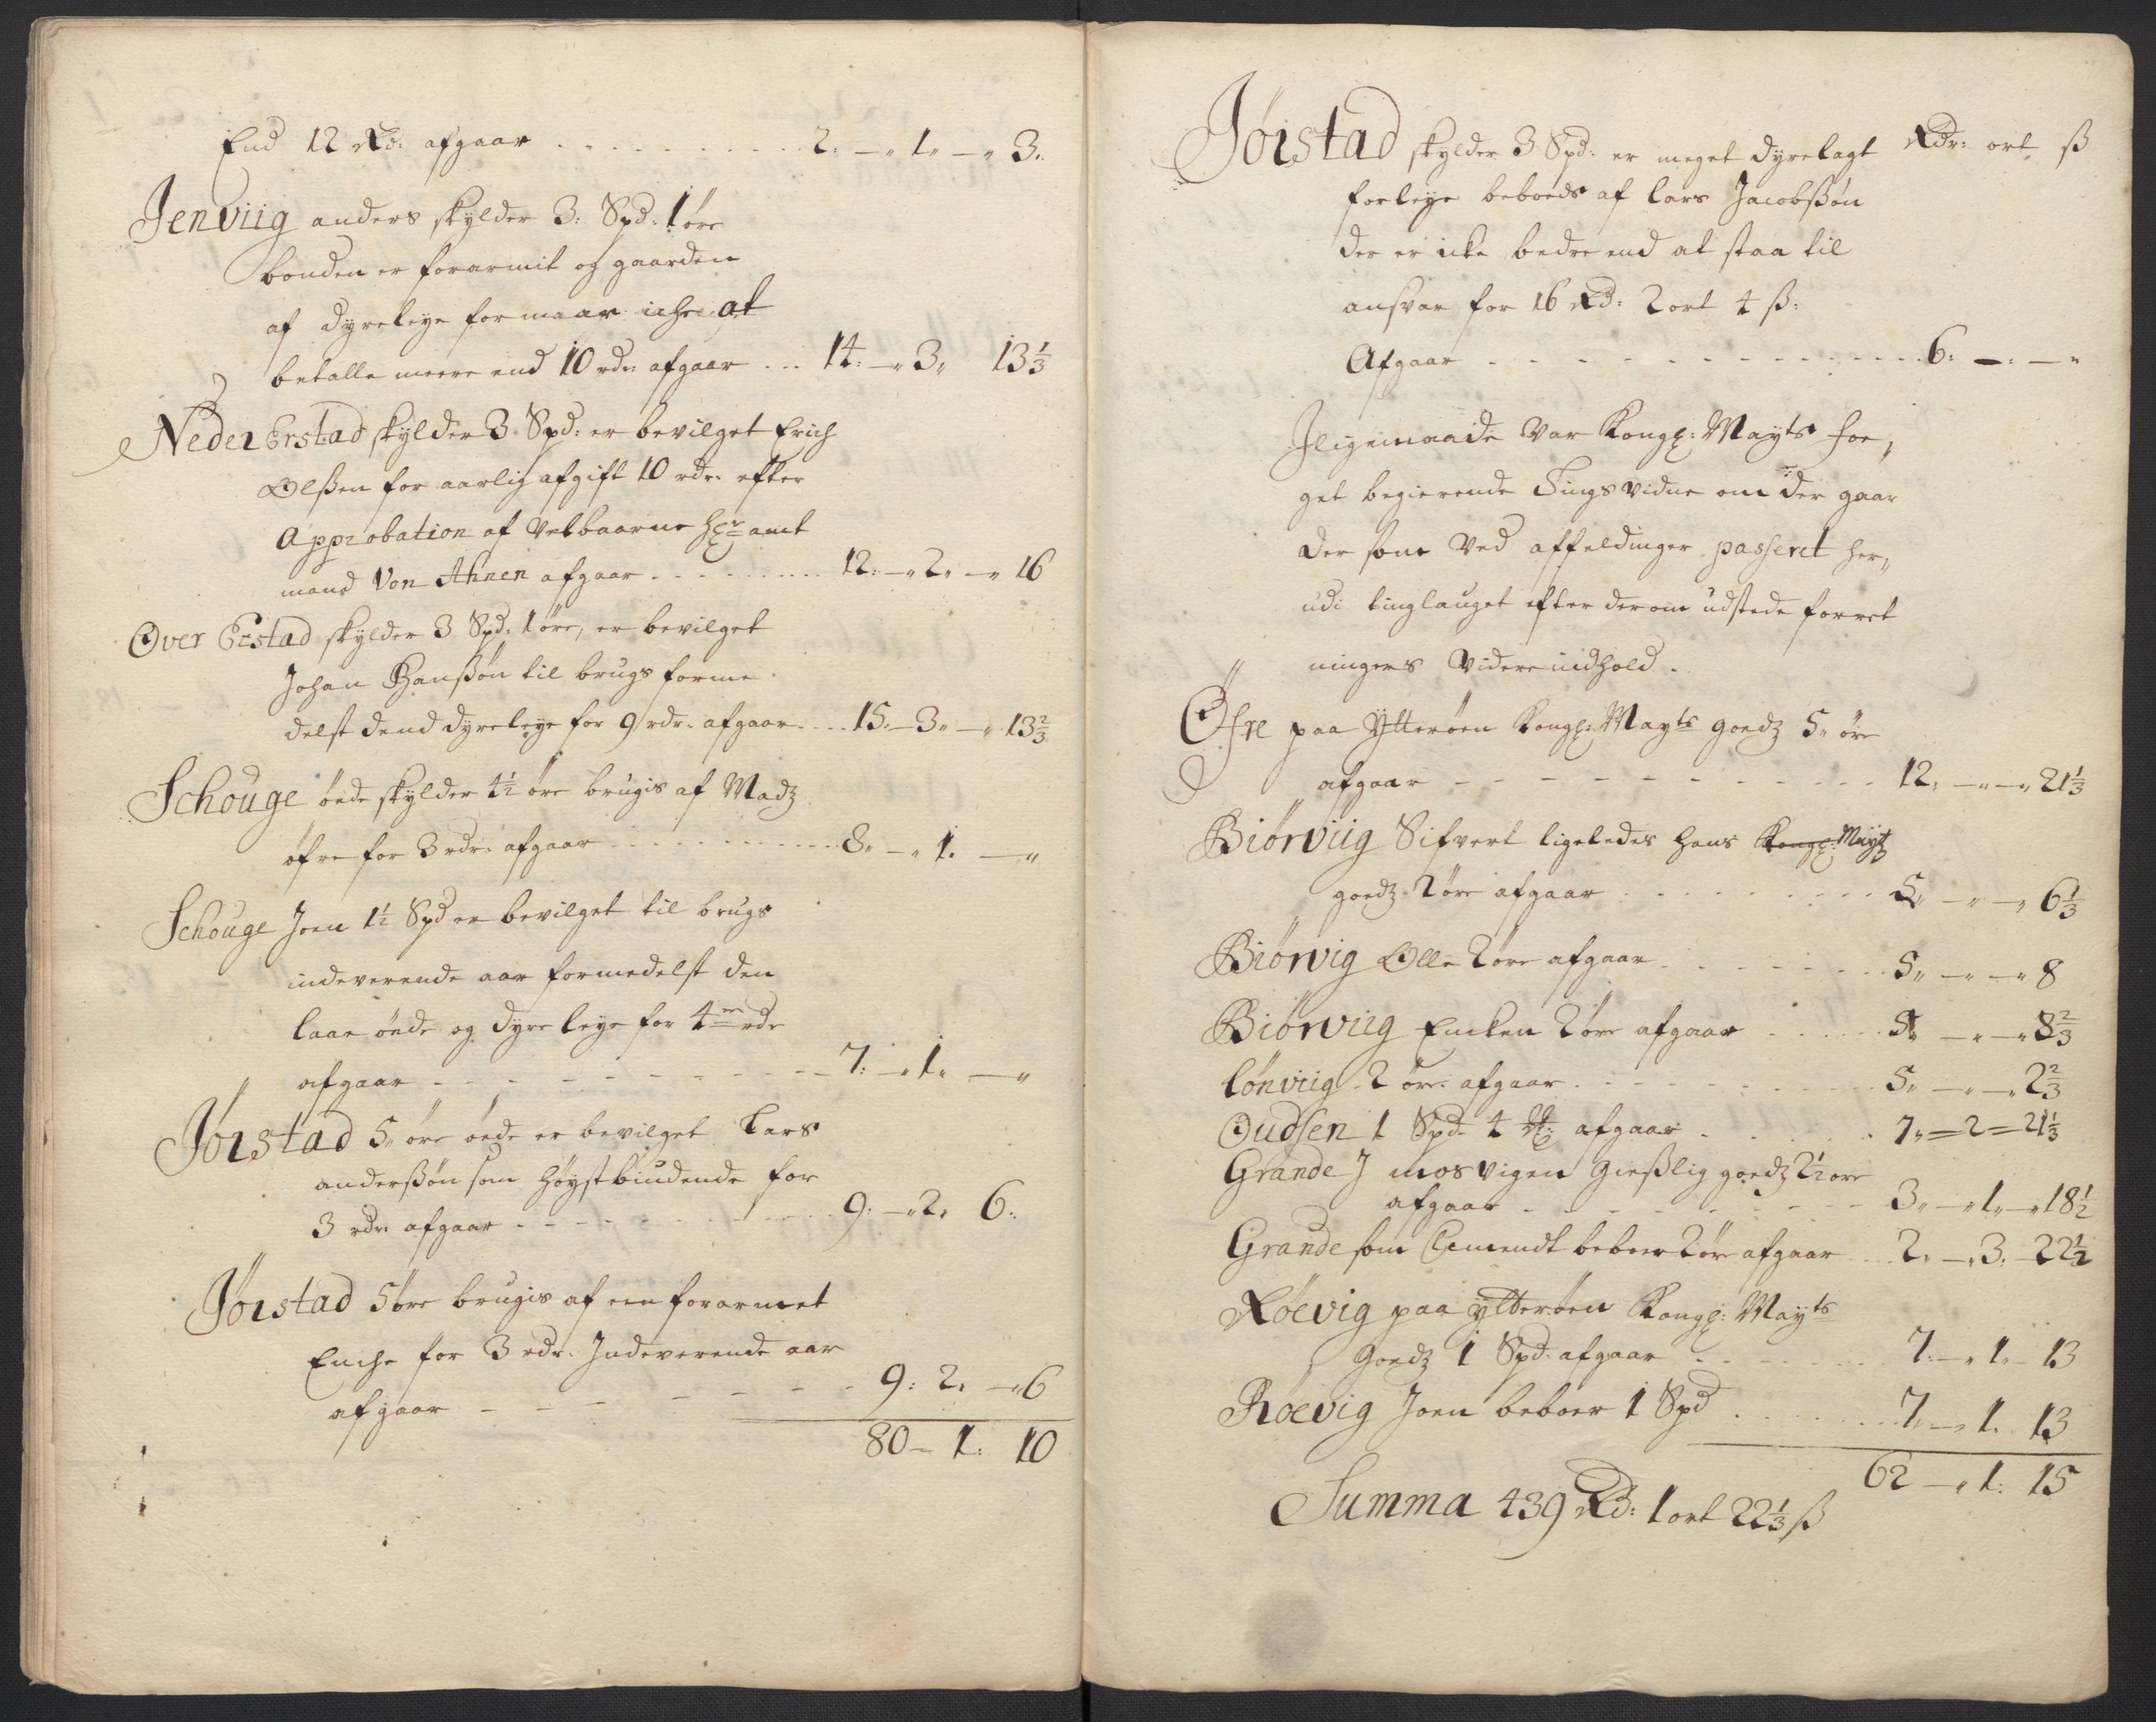 End 12 Rd: afgaar . . . . . . . . . . 2. —„ 1„ —„ 3„
Jenviig anders skylder 3: Spd: 1 øre
bonden er forarmit og gaarden
af dyreleye formaar iche at
betalle meere end 10 rdr: afgaar . . . 14: —„ 3„ 13 1/3
Neder Erstad skylder 3 Spd: er bevilget Erich
Olßen for aarlig afgift 10 rdr: efter
Approbation af Velbaarne Hr amt
mand Von Ahnen afgaar . . . . . . . . 12: —„ 2„ —„ 16
Over Erstad skylder 3 Spd: 1 øre, er bevilget
Johan Hanßøn til brugs forme
delst dend dyreleye for 9 rdr. afgaar . . . 15. — 3„ —„ 13 2/3
Schouge øede skylder 4½ øre brugis af Madz
øfre for 3 rdr. afgaar . . . . . . . . . . 8„ —„ 1. —„
Schouge Joen 1½ Spd er bevilget til brugs
indeverende aar formedelst den
laae øede og dyre leye for 4 rdr
afgaar - - - - - - - - - - 7: —„ 1„ —„
Jørstad 5„ øre øede er bevilget Lars
anderßøn som høystbiudende for
3 rdr. afgaar - - - - - - - - - 9: —„ 2„ 6:
Jørstad 5 øre brugis af een forarmet
Enche for 3 rdr. Indeverende aar
afgaar - - - - - - - 9: 2„ —„ 6
80 — 1: 10
Jøistad skylder 3 Spd: er meget dyrelagt Rdr: ort ß
forleye beboeds af Lars Jacobßøn
der er icke bedre end at staa til
ansvar for 16 Rd: 2 ort 4 ß:
Afgaar - - - - - - - - - - - - - 6: —. —„
Iligemaade var Kongl: Mayts fo„
get begierende Tingsvidne om der gaar
der som ved affeldinger passeret her„
udi tinglauget efter derom udstede forret
ningers videre indhold.
Øfre paa Ytterøen Kongl: Mayts goedz 5„ øre
afgaar - - - - - - - - - - 12„ —„ —„ 21 1/3
Biørviig Sifvert ligeledes hans Kongl: Mayts
goedz 2 øre afgaar . . . . . . . . . 5„ —„ —„ 6 1/3
Biørvig Olle 2 øre afgaar . . . . . . . . 5„ —„ —„ 8
Biørviig Encken 2 øre afgaar . . . . . 5„ —„ —„ 8 2/3
Lønviig 2 øre afgaar . . . . . . . . . . 5„ —„ —„ 2 2/3
Oudsen 1 Spd. 4 afgaar . . . . . . 7„ = 2 = 21 1/3
Grande J mosvigen Gießlig goedz 2½ øre
afgaar - - - - - - - - 3„ —„ 1„ —„ 18½
Grande som Clemendt beboer 2 øre afgaar . . 2„ —„ 3. — 22½
Røevig paa ytterøen Kongl: Mayts
Goedz 1 Spd. afgaar . . . . . . . 7: —„ 1„ — 13
Røevig Joen beboer 1 Spd . . . . . . . 7„ —„ 1. 13
62 —„ 1: 15
Summa 439 Rd: 1 ort 22 1/3 ß